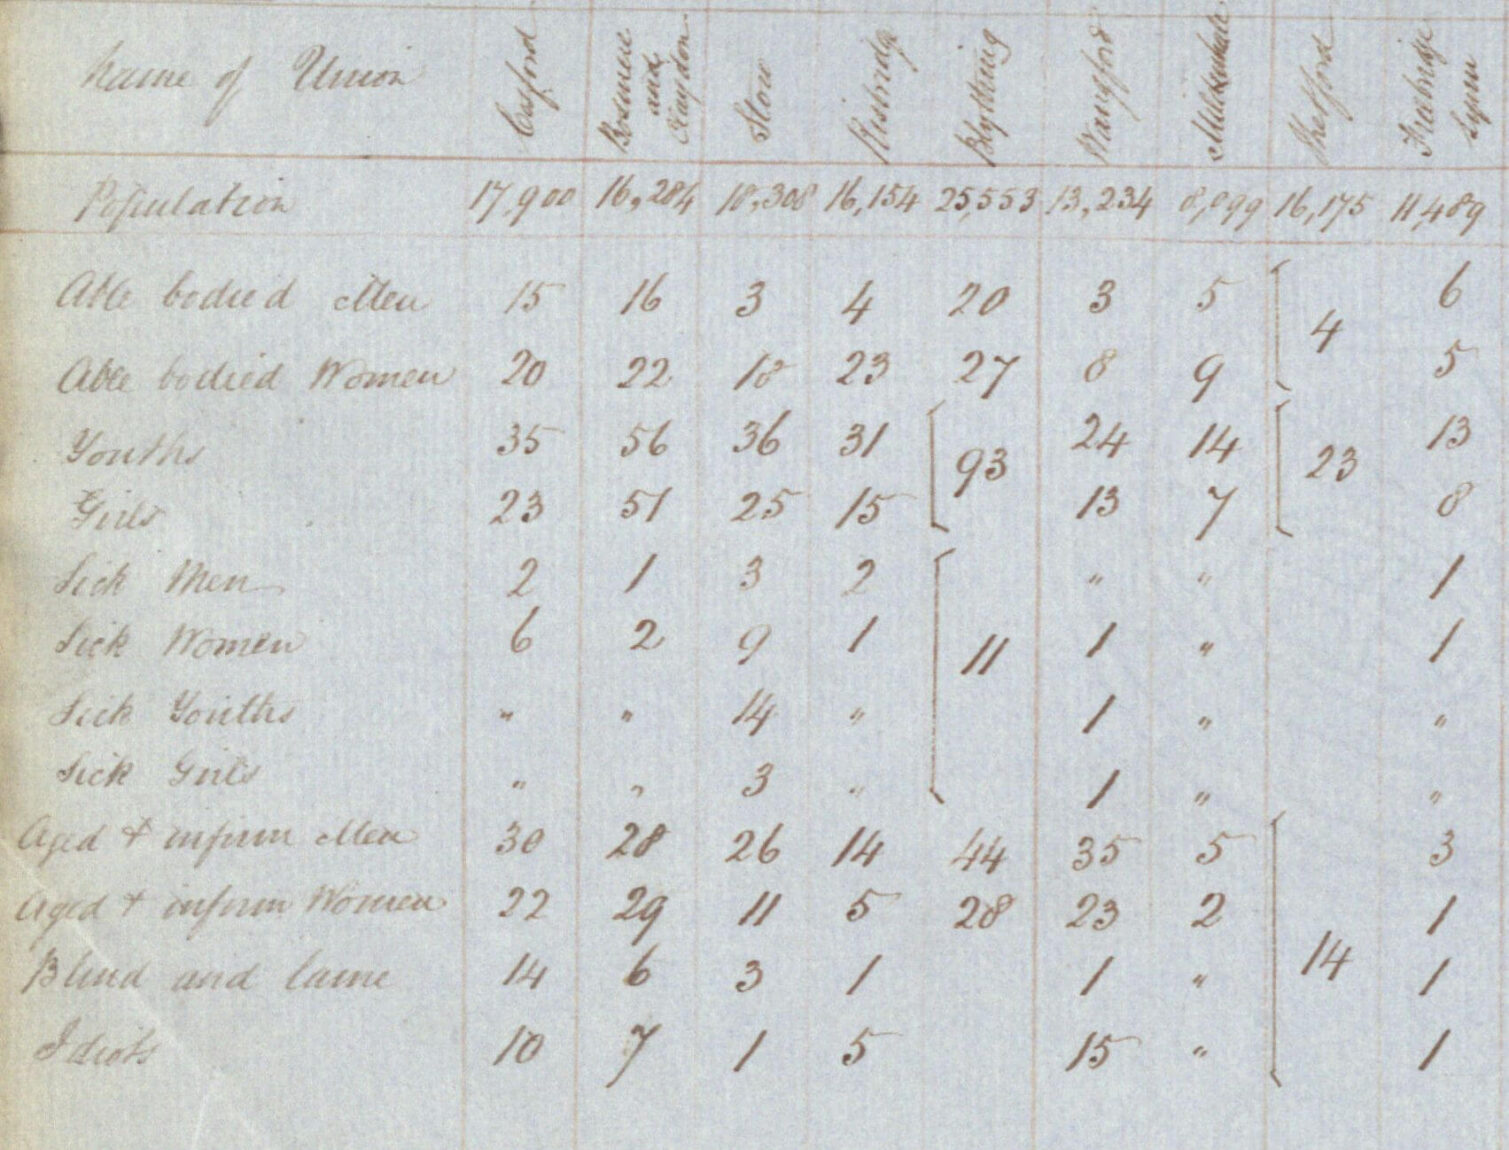 Name of Union Cosford Bosmere and Claydon Stow Risbridge Blything Wangford Mildenhall Thetford Freebridge Lynn
Population 17,900 16,284 18,308 16,154 25,553 13,234 8,099 16,175 11,489
Able bodied Men 15 16 3 4 20 3 5 4 6
Able bodied Women 20 22 18 23 27 8 9 5
Youths 35 56 36 31 93 24 14 23 13
Girls 23 51 25 15 13 7 8
Sick Men 2 1 3 2 " " 1
Sick Women 6 2 9 1 11 1 " 1
Sick Youths " " 14 " 1 " "
Sick Girls " " 3 " 1 " "
Aged + infirm Men 30 28 26 14 44 35 5 3
Aged + infirm Women 22 29 11 5 28 23 2 1
Blind and lame 14 6 3 1 1 " 14 1
Idiots 10 7 1 5 15 " 1